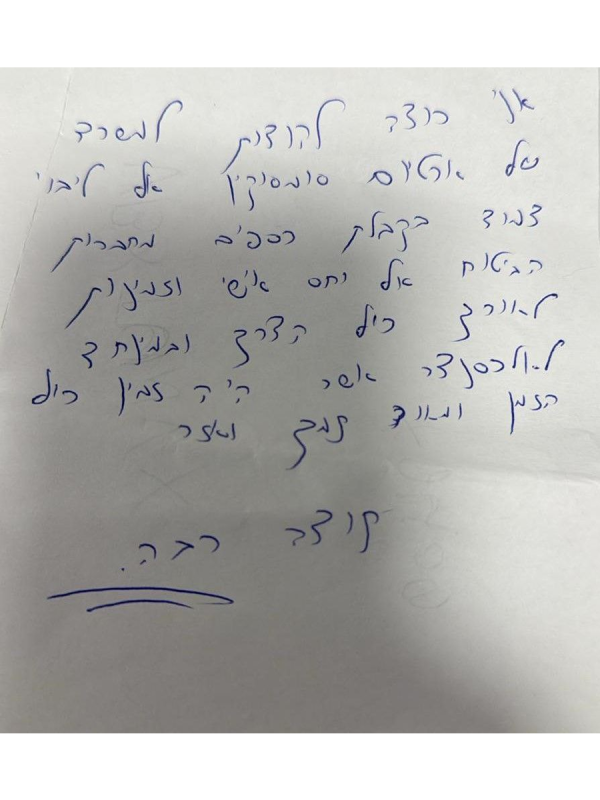 אני רוצה להודות למשרד
של ארטיום סומסוקין על ליבוי
צמוד בקבלת כספים מחברות
הביטוח על יחס אישי וזמינות
לאורך כול הדרך ובמיוחד
לאלכסנדר אשר היה זמין כול
הזמן ומאוד תמך ועזר
תודה רבה.